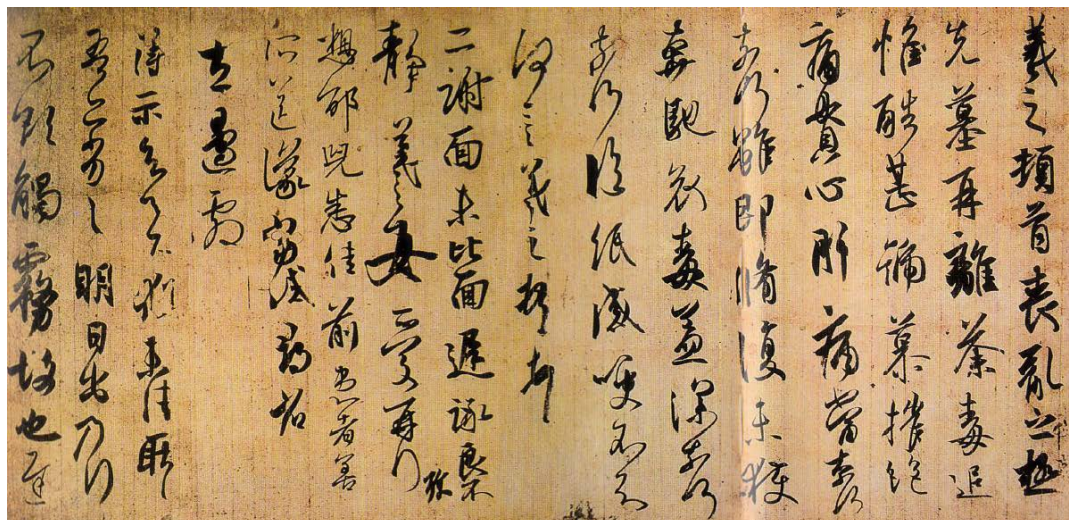 羲之頓首喪亂之極
先墓再離荼毒追
惟酷甚號慕摧絕
痛貫心肝痛當奈何
奈何雖即脩復未獲
奔馳哀毒益深奈何
奈何臨紙感哽不知
何言羲之頓首
二謝面未比面遲詠良不
靜羲之女愛再拜
想邵兒悉佳前患者善
所送議當試尋省
左邊劇
得示知足下猶未佳耿
吾亦劣劣明日出乃行
不欲觸霧故也遲